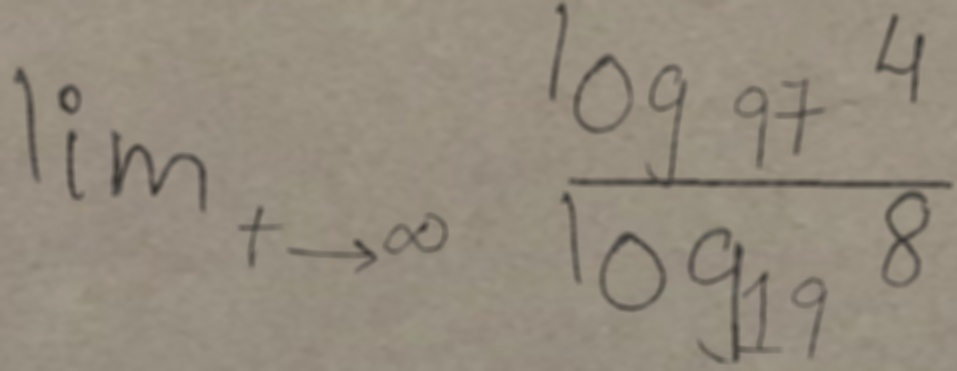 lim t→∞ log₉₇ 4 / log₁₉ 8